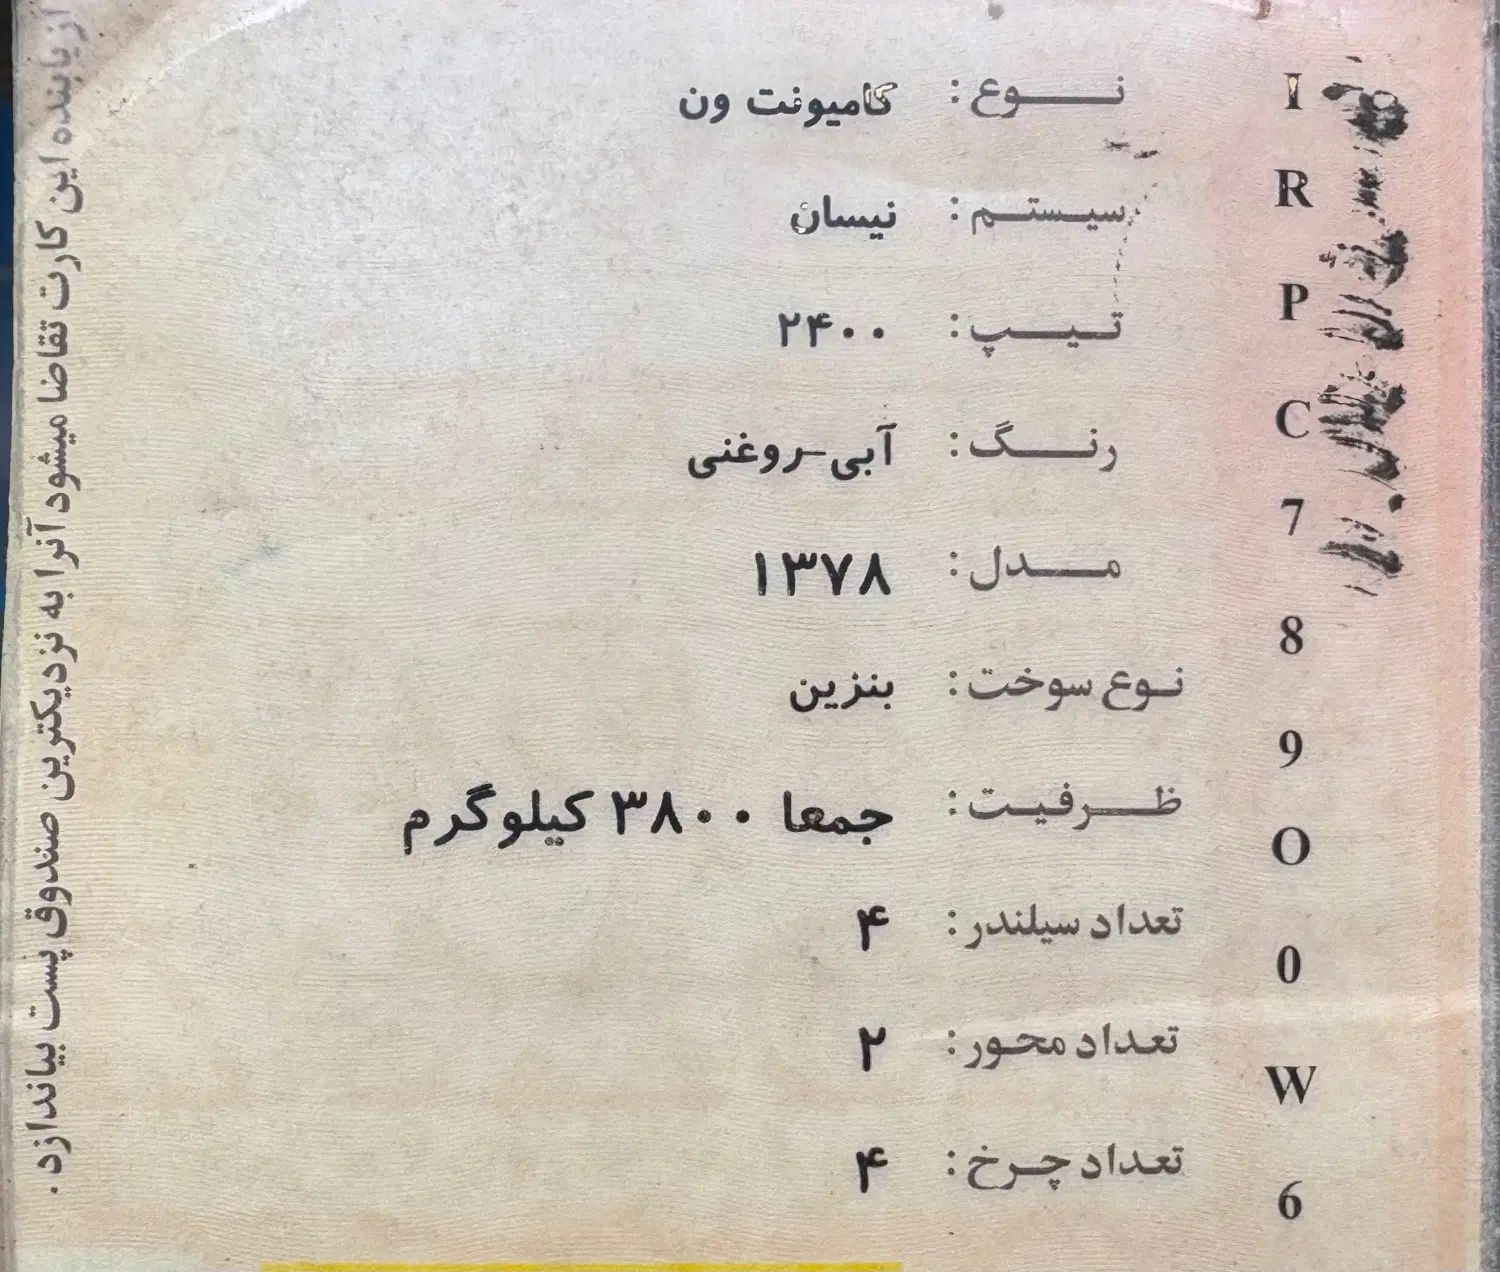 نوع: کامیونت ون
سیستم: نیسان
تیپ: ۲۴۰۰
رنگ: آبی-روغنی
مدل: ۱۳۷۸
نوع سوخت: بنزین
ظرفیت: جمعا ۳۸۰۰ کیلوگرم
تعداد سیلندر: ۴
تعداد محور: ۲
تعداد چرخ: ۴
I
R
P
C
7
8
9
O
0
W
6
از یابنده این کارت تقاضا میشود آنرا به نزدیکترین صندوق پست بیاندازد.